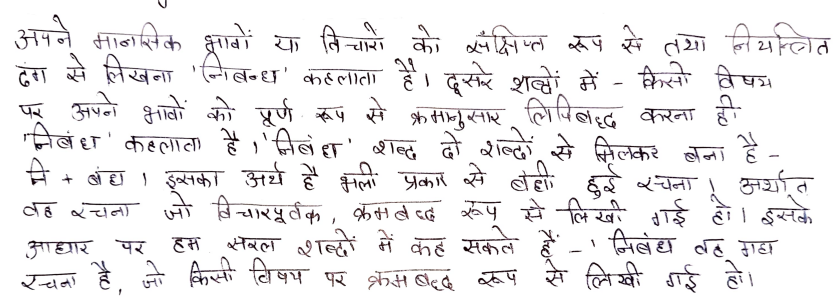 अपने मानसिक भावों या विचारों को संक्षिप्त रूप से तथा नियन्त्रित
ढंग से लिखना 'निबन्ध' कहलाता है। दूसरे शब्दों में - किसी विषय
पर अपने भावों को पूर्ण रूप से क्रमानुसार लिपिबद्ध करना ही
'निबंध' कहलाता है। 'निबंध' शब्द दो शब्दों से मिलकर बना है -
नि + बंध। इसका अर्थ है भली प्रकार से बंधी हुई रचना। अर्थात
वह रचना जो विचारपूर्वक, क्रमबद्ध रूप से लिखी गई हो। इसके
आधार पर हम सरल शब्दों में कह सकते हैं - 'निबंध वह गद्य
रचना है, जो किसी विषय पर क्रमबद्ध रूप से लिखी गई हो।